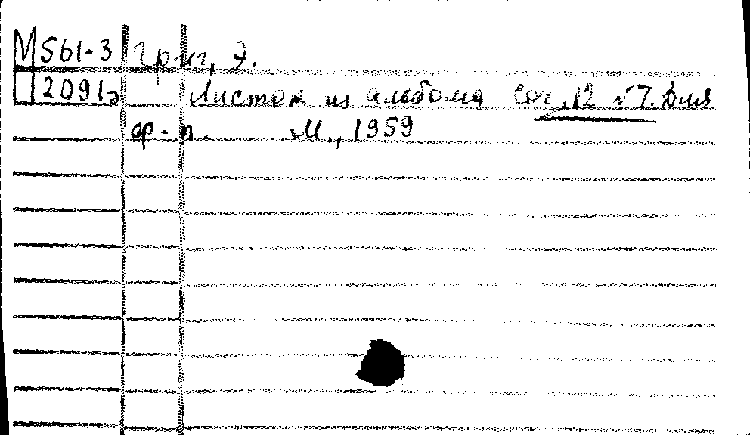 М561-3 Григ, Э.
2091э Листок из альбома Соч. 12 № 7. Для
ф-п. М., 1959